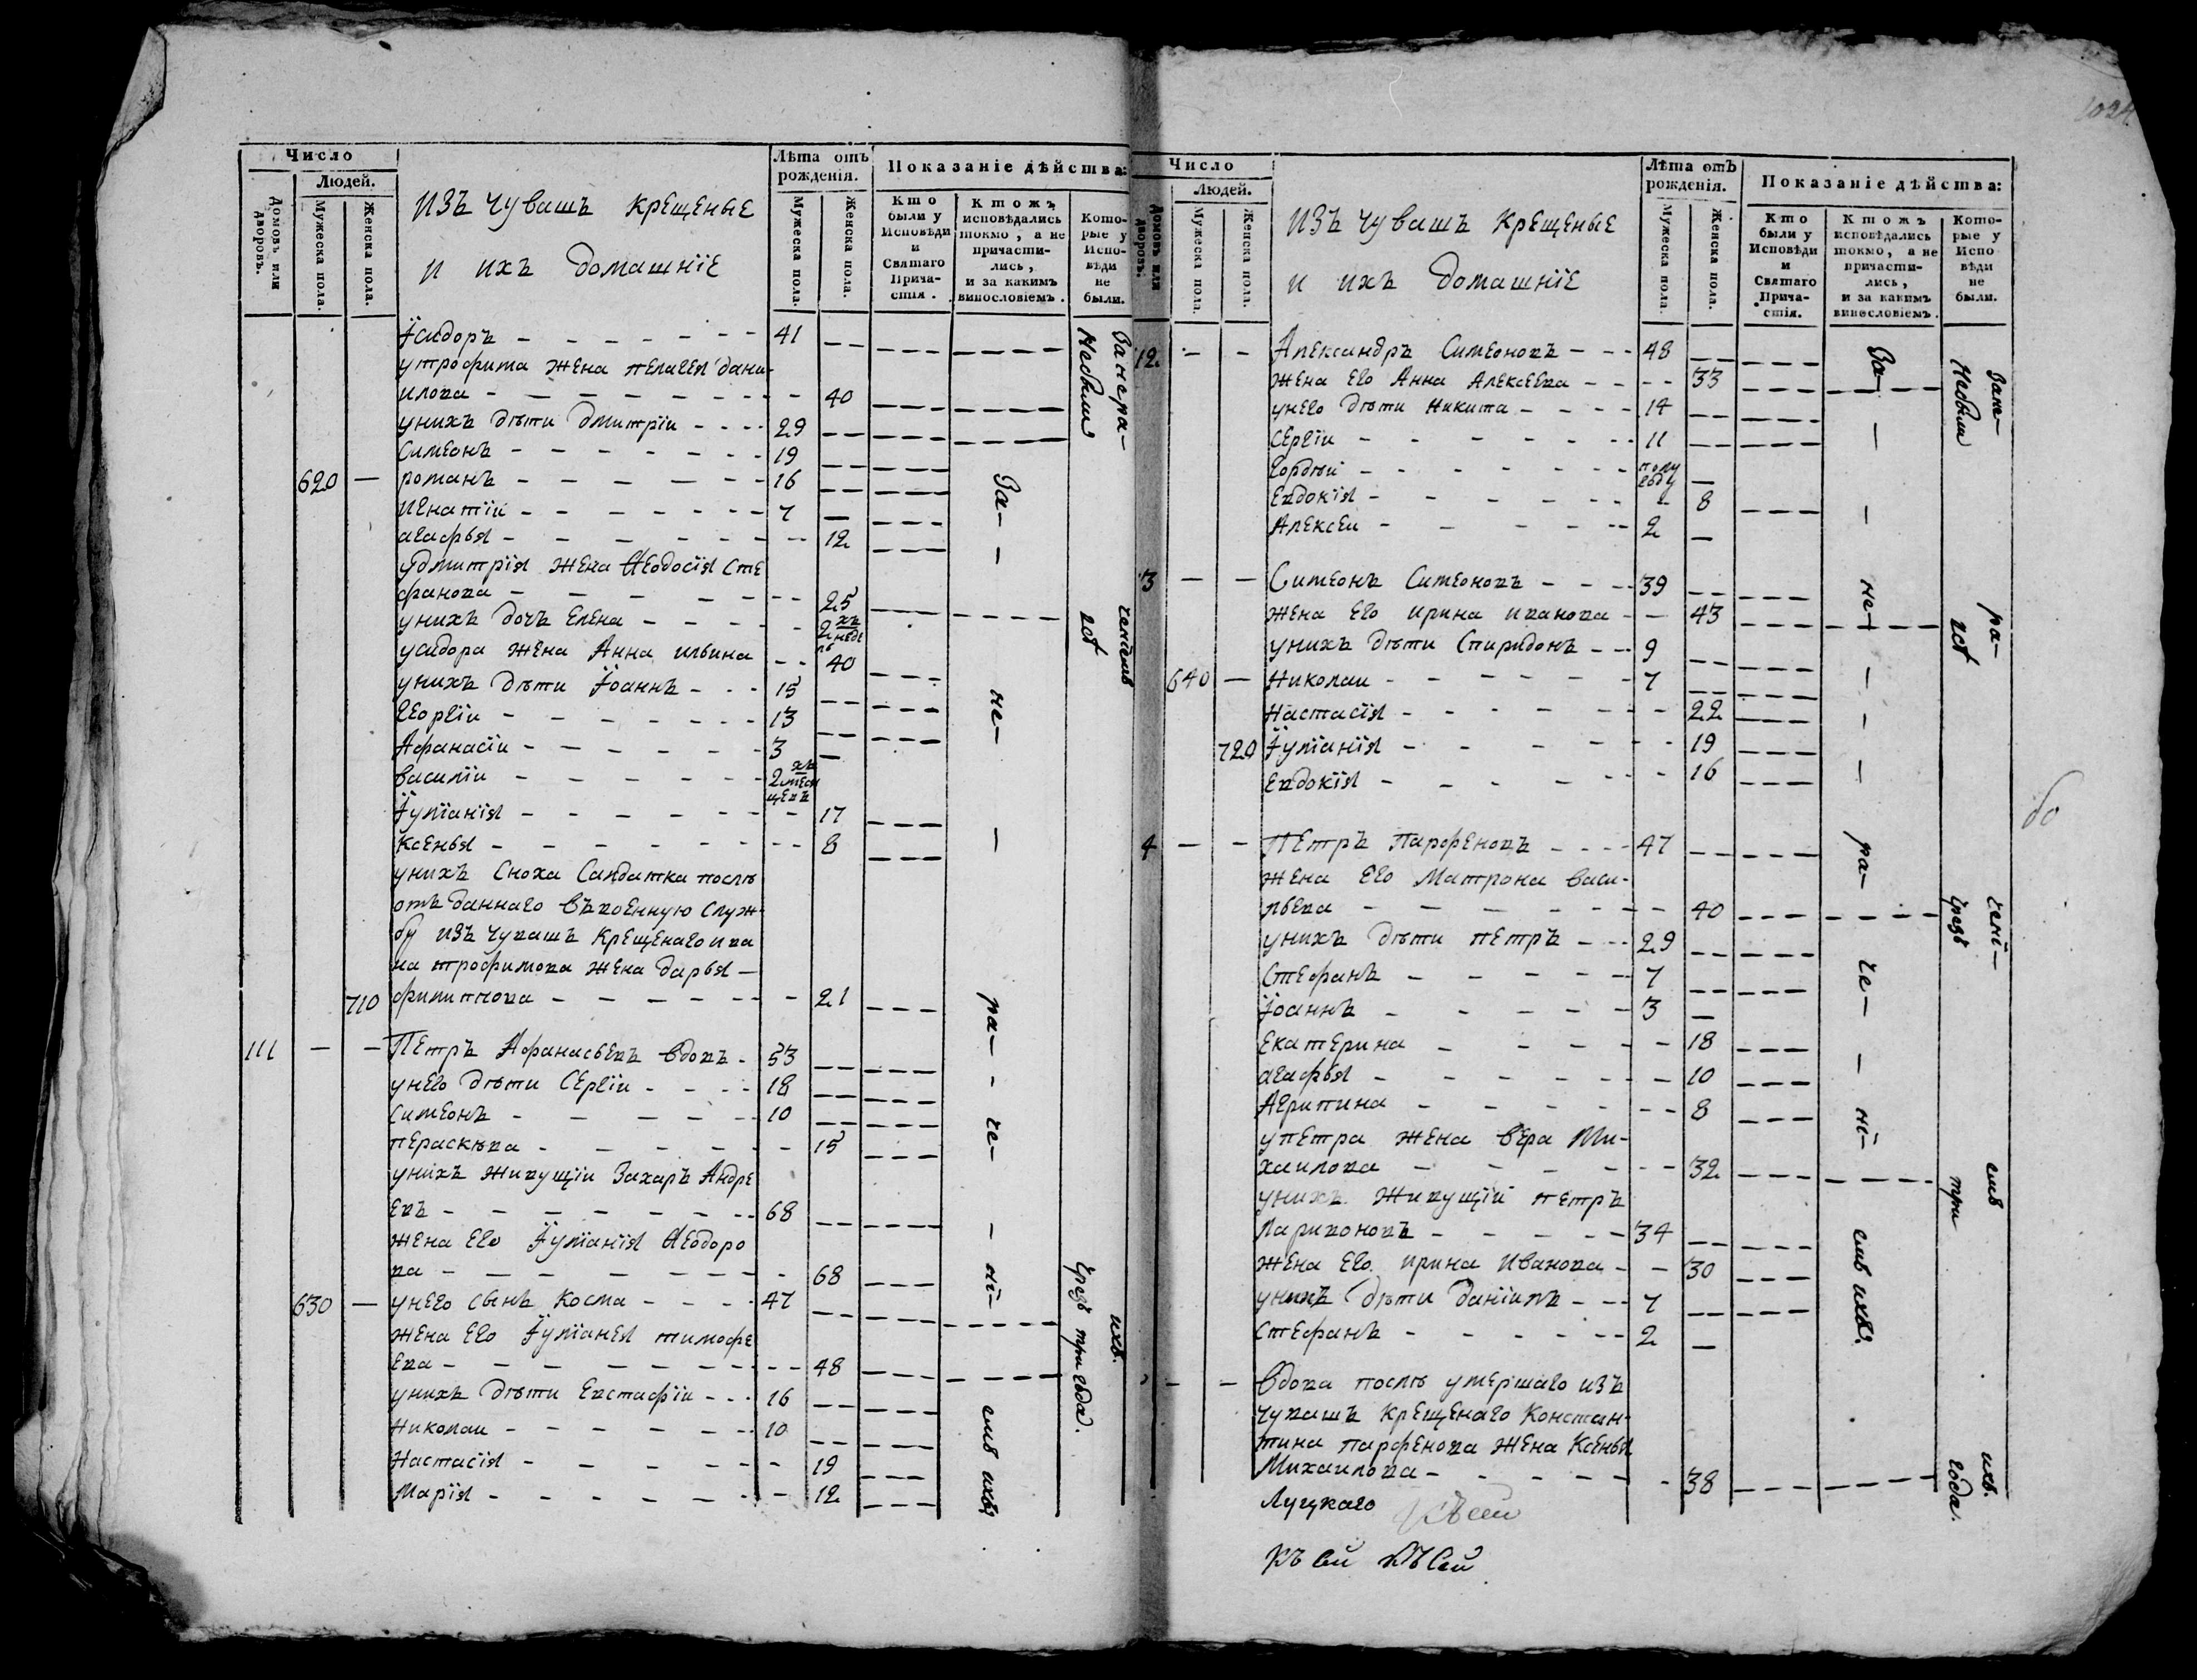 Число
Людей.
Домовъ или дворовъ.
Мужеска пола.
Женска пола.
изъ чувашъ крещеные
и ихъ домашніе
Лѣта отъ рожденія.
Мужеска пола.
Женска пола.
Показаніе дѣйства:
Кто были у Исповѣди и Святаго Причастія.
Ктожъ исповѣдались токмо, а не причастились, и за какимъ винословіемъ.
Которые у Исповѣди не были.
Їсидоръ 41
утрофима жена пелагея дани-
илова 40
унихъ дѣти дмитріи 29
Симеонъ 19
620 — романъ 16
игнатіи 7
агафья 12
удмитрія жена Ѳеодосія Сте
фанова 25
унихъ дочъ Елена 2хъ недѣль
усидора жена Анна ильина 40
унихъ дѣти Їоаннъ 15
георгіи 13
Афанасіи 3
василіи 2хъ месецевъ
Їуліанія 17
ксенья 8
унихъ Сноха Салдатка послѣ
отъ даннаго въ военную служ-
бу изъ чувашъ крещенаго ива
на трофимова жена дарья —
710 филиппова 21
111 — — Петръ Афанасьевъ вдовъ 53
унего дѣти Сергіи 18
Симеонъ 10
пераскѣва 15
унихъ живущіи Захаръ Андре
евъ 68
жена его Їуліанія Ѳеодоро
ва 68
630 — унего сынъ косма 47
жена его Їуліанея тимофе
ева 48
унихъ дѣти Евстафіи 16
николаи 10
настасія 19
марія 12
За-
не-
ра-
че-
ні-
емъ ихъ
Занера-
ченіемъ
ихъ.
Небыли
чрезъ три года.
Число
Людей.
Домовъ или дворовъ.
Мужеска пола.
Женска пола.
изъ чувашъ крещеные
и ихъ домашніе
Лѣта отъ рожденія.
Мужеска пола.
Женска пола.
Показаніе дѣйства:
Кто были у Исповѣди и Святаго Причастія.
Ктожъ исповѣдались токмо, а не причастились, и за какимъ винословіемъ.
Которые у Исповѣди не были.
12 — — Александръ Симеоновъ 48
жена его Анна Алексеева 33
унего дѣти никита 14
Сергіи 11
гордѣи полу году
Евдокія 8
Алексеи 2
3 — — Симеонъ Симеоновъ 39
жена его ирина иванова 43
унихъ дѣти Спиридонъ 9
640 — николаи 7
настасія 22
720 Їуліанія 19
евдокія 16
4 — — Петръ Парфеновъ 47
жена его Матрона васи-
льева 40
унихъ дѣти петръ 29
Стефанъ 7
Їоаннъ 3
екатерина 18
агафья 10
Агрипина 8
упетра жена вера Ми-
хаилова 32
унихъ живущіи петръ
Ларивоновъ 34
жена его ирина Иванова 30
унихъ дѣти даніилъ 7
Стефанъ 2
— — вдова послѣ умершаго изъ
чувашъ крещенаго констан-
тина парфенова жена ксенья
Михаилова 38
За-
не-
ра-
че-
ні-
емъ ихъ.
Зане-
ра-
чені-
емъ
ихъ.
Небыли
чрезъ
три
года.